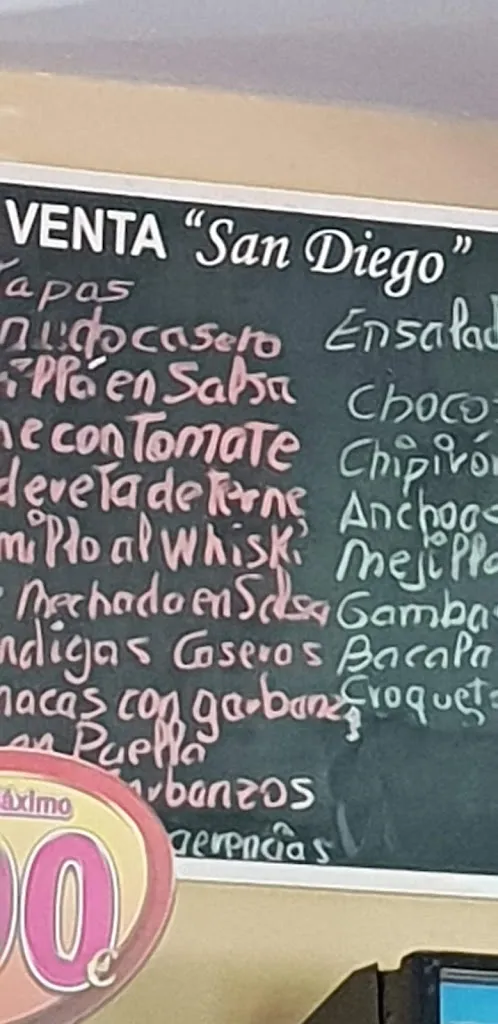 VENTA “San Diego”
Tapas
nudo casero
illa en Salsa
ne con Tomate
devela de Terne
millo al Whiski
Mechada en Salsa
ndigas Caseras
nacas con garbanz
en Paella
rbanzos
gerencias
Ensalad
Choco
Chipiro
Anchoa
Mejilla
Gamba
Bacala
Croquet
áximo
00€